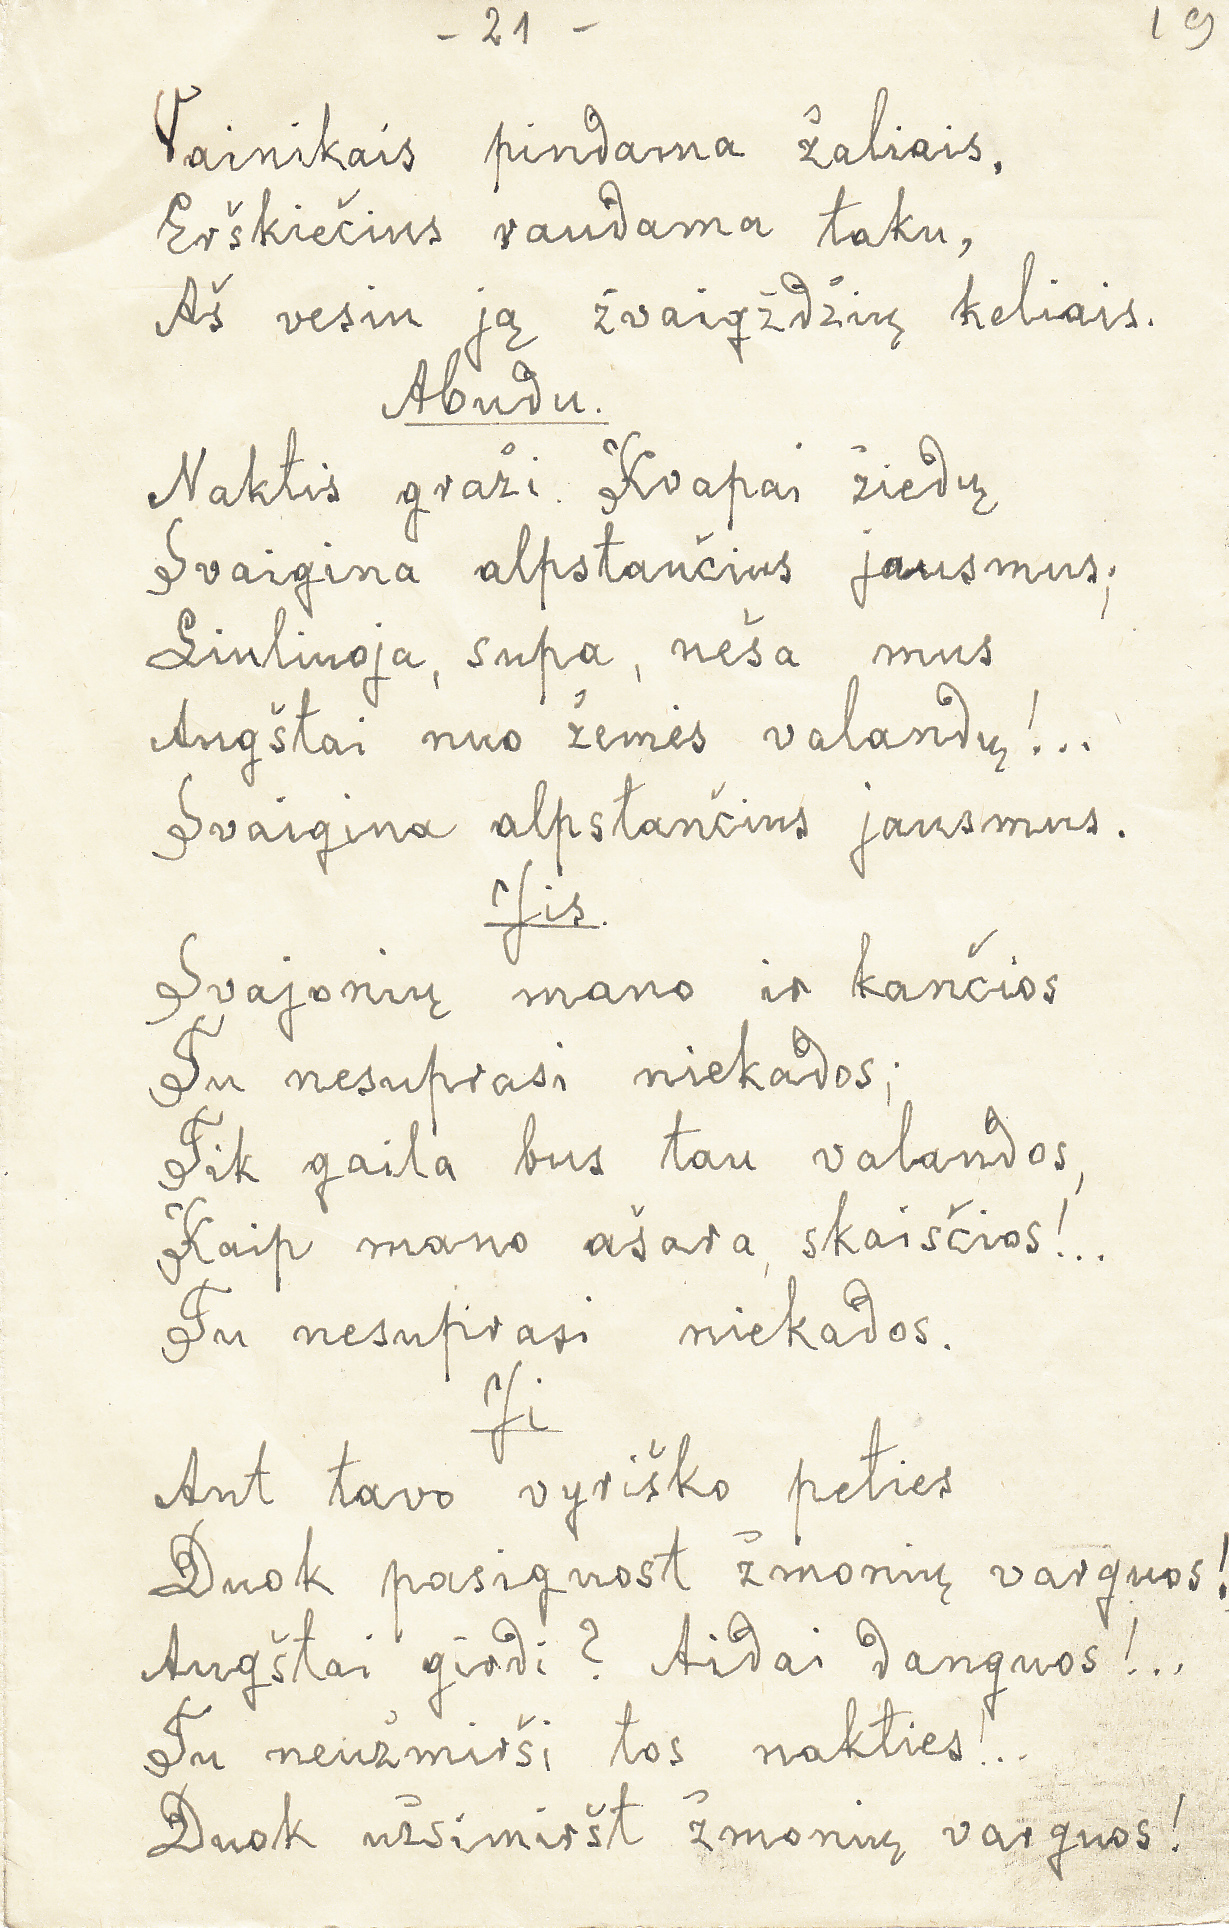 - 21 -
19
Vainikais pindama žaliais,
Erškiečius raudama taku,
Aš vesiu ją žvaigždžių keliais.
Abudu.
Naktis graži. Kvapai žiedų
Svaigina alpstančius jausmus;
Liuliuoja, supa, neša mus
Augštai nuo žemės valandų!...
Svaigina alpstančius jausmus.
Jis.
Svajonių mano ir kančios
Tu nesuprasi niekados;
Tik gaila bus tau valandos,
Kaip mano ašara, skaisčios!...
Tu nesuprasi niekados.
Ji
Ant tavo vyriško peties
Duok pasiguost žmonių varguos!
Augštai girdi? Aidai danguos!...
Tu neužmirši tos nakties!...
Duok užsimiršt žmonių varguos!